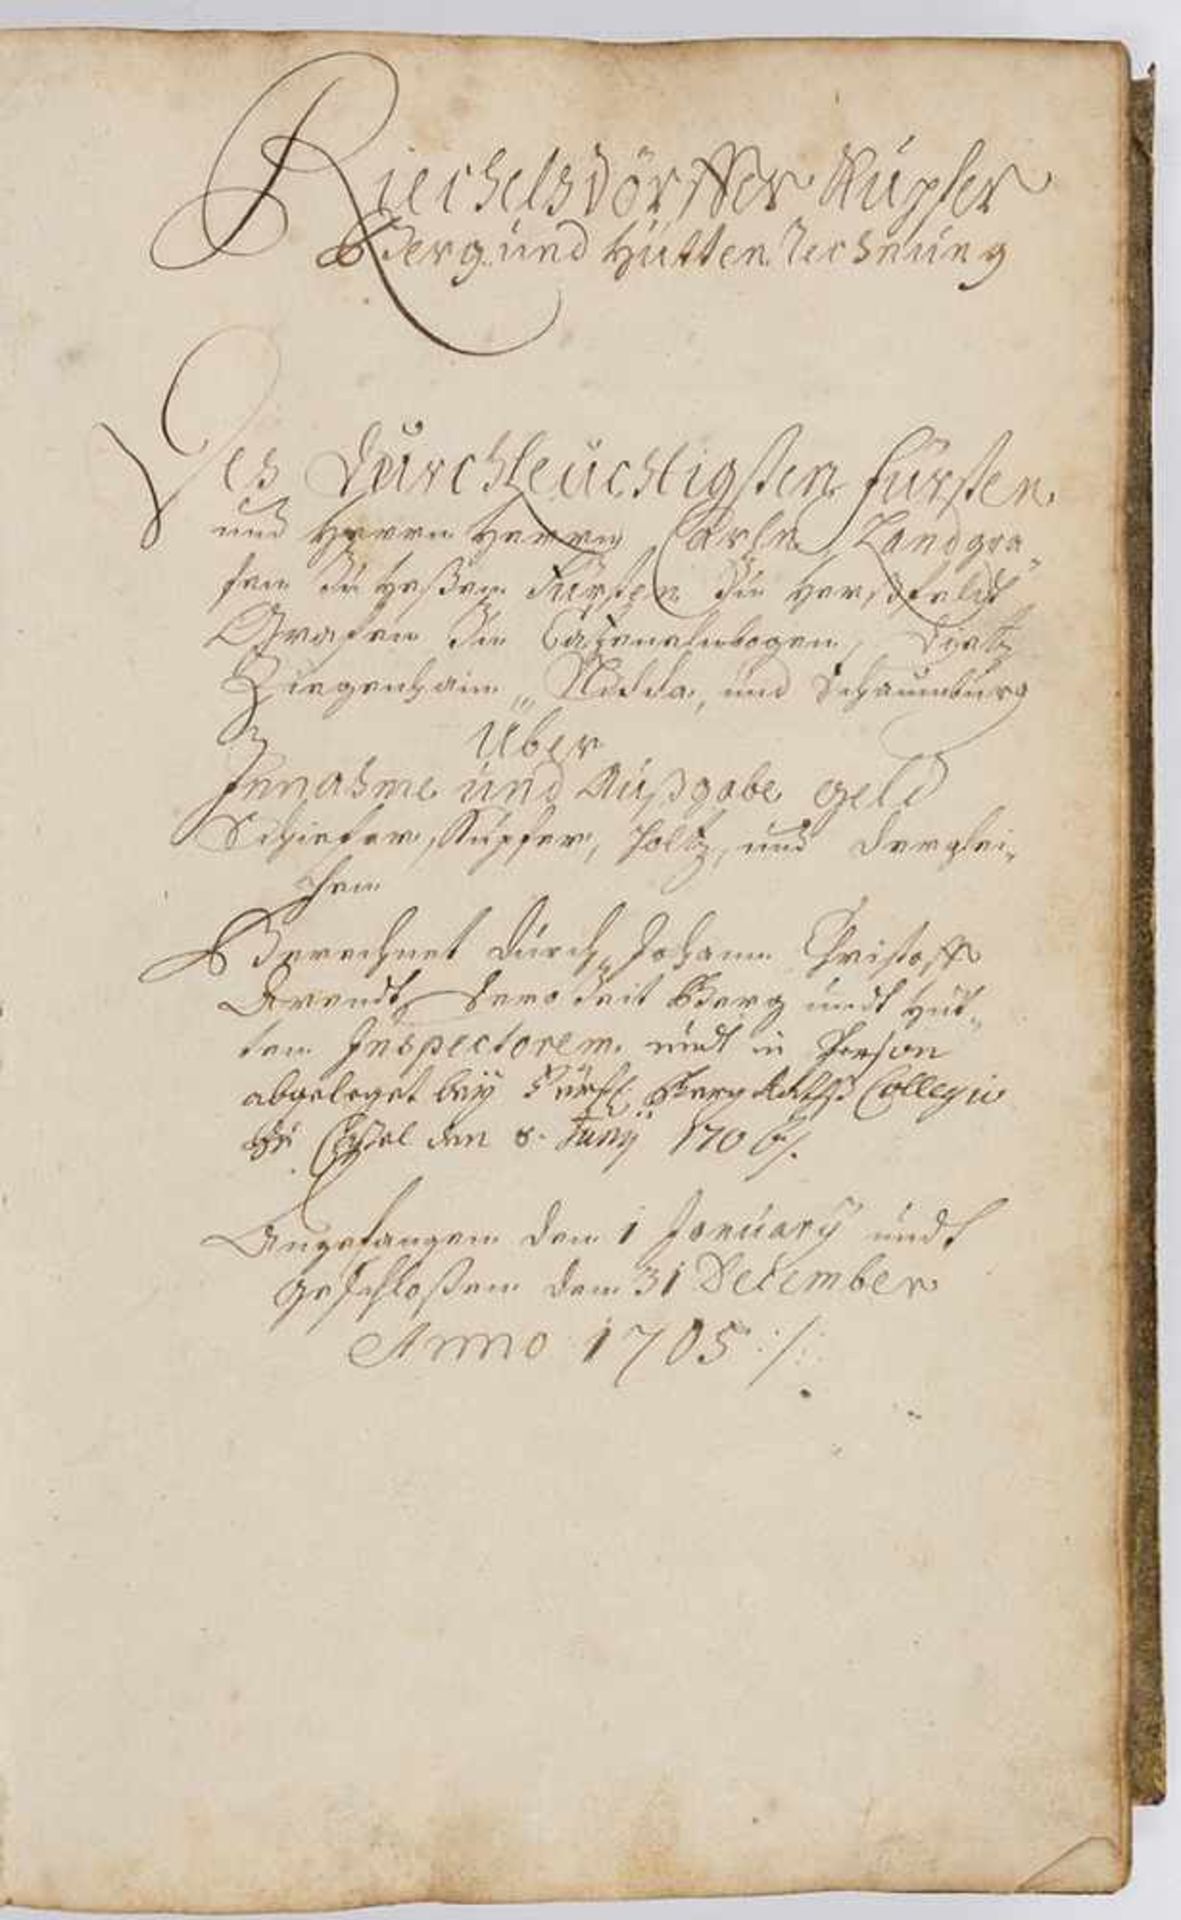 Riechelsdörffer Kupfer
Berg und Hütten Rechnung
Des Durchleuchtigsten Fürsten
und Herrn Herrn Carln Landgra„
fen zu Heßen Fürsten zu Herßfeldt
Grafen zu Catzenelnbogen, Dietz
Ziegenhain, Nidda, und Schaumburg
Über
Innahme und Außgabe geld
Schiefer, Kupfer, Holtz, und derglei„
chen
Berechnet durch Johann Christoff
Arendt, dero Zeit Berg undt Hüt„
ten Inspectorem undt in Person
abgeleget bey Fürstl. Berg Raths Collegio
zu Cassel den 8. Juny 1706/.
Angefangen den 1 January undt
geschloßen den 31 December
Anno 1705 :/: